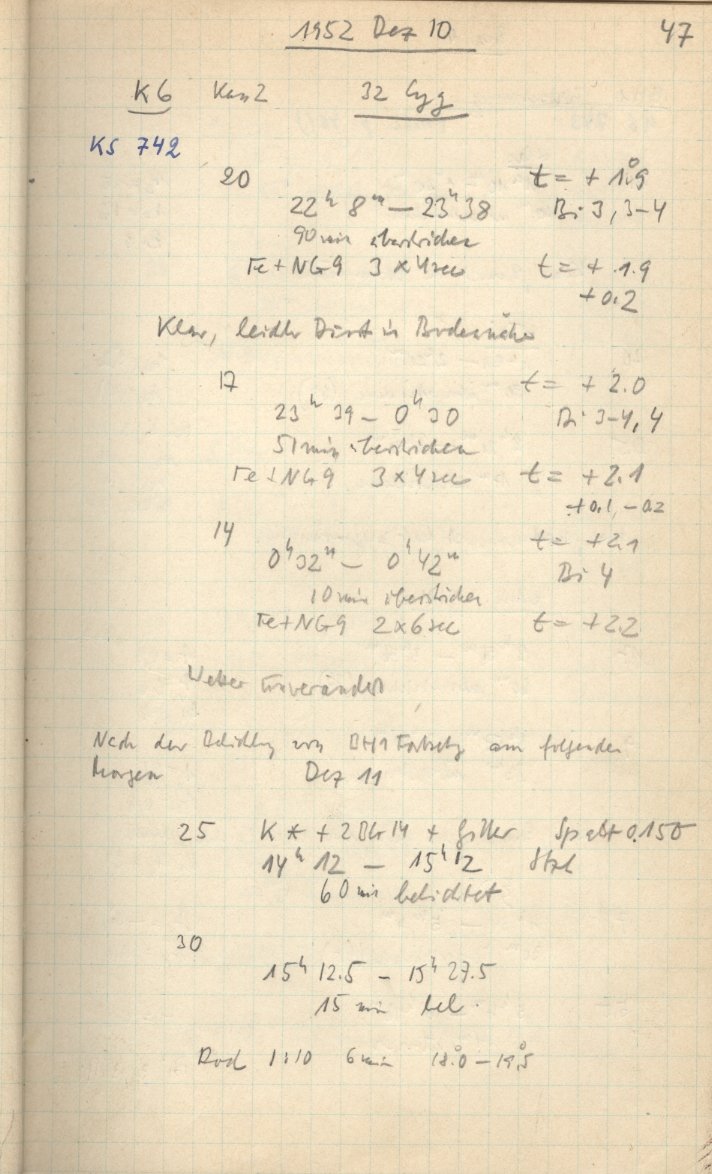 1952 Dez 10 47
K6 Kas 2 32 Cyg
KS 742
20 t = + 1°.9
22ʰ 8ᵐ — 23ʰ 38 Bi 3, 3-4
90 min überstrichen
Fe + NG9 3 x 4 sec t = + 1.9
+ 0.2
Klar, leichter Dunst in Bodennähe
17 t = + 2.0
23ʰ 39 — 0ʰ 30 Bi 3-4, 4
51 min überstrichen
Fe + NG9 3 x 4 sec t = + 2.1
+0.1, -0.2
14 t = + 2.1
0ʰ 32ᵐ — 0ʰ 42ᵐ Bi 4
10 min überstrichen
Fe + NG9 2 x 6 sec t = + 2.2
Wetter unverändert
Nach der Belichtg von Fortsetzg am folgenden
Morgen Dez 11
25 K * + 2 BG 14 + Gitter Spalt 0.150
14ʰ 12 — 15ʰ 12
60 min belichtet
30
15ʰ 12.5 — 15ʰ 27.5
15 min bel.
Rod 1:10 6 min 18°.0 — 19°.5